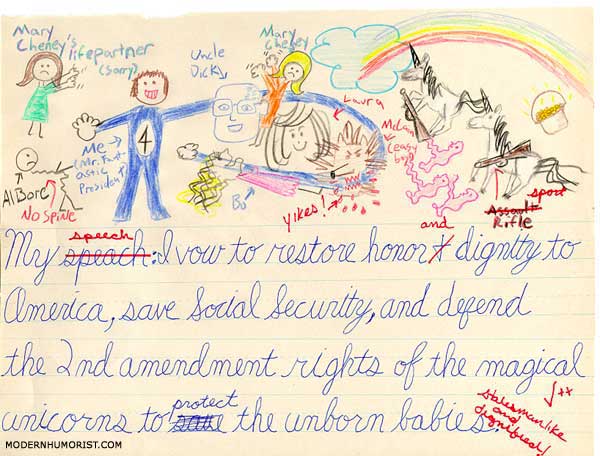 Mary
Cheney's
lifepartner
(sorry)
Uncle
Dick
Mary
Cheney
Laura
McCain
(easy
boy)
4
Me
(Mr. Fant-
astic
President)
Al Bore
No Spine
Bo
Yikes!
Assault
sport
Rifle
speech
and
My speach: I vow to restore honor + dignity to
America, save Social Security, and defend
the 2nd amendment rights of the magical
protect
unicorns to save the unborn babies.
√++
Statesmanlike
and
dignified!
MODERNHUMORIST.COM